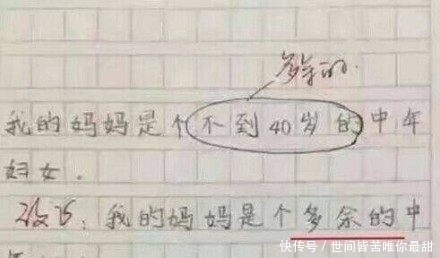 多余的.
我的妈妈是个不到40岁的中年
妇女.
改正:我的妈妈是个多余的中
快传号/世间皆苦唯你最甜